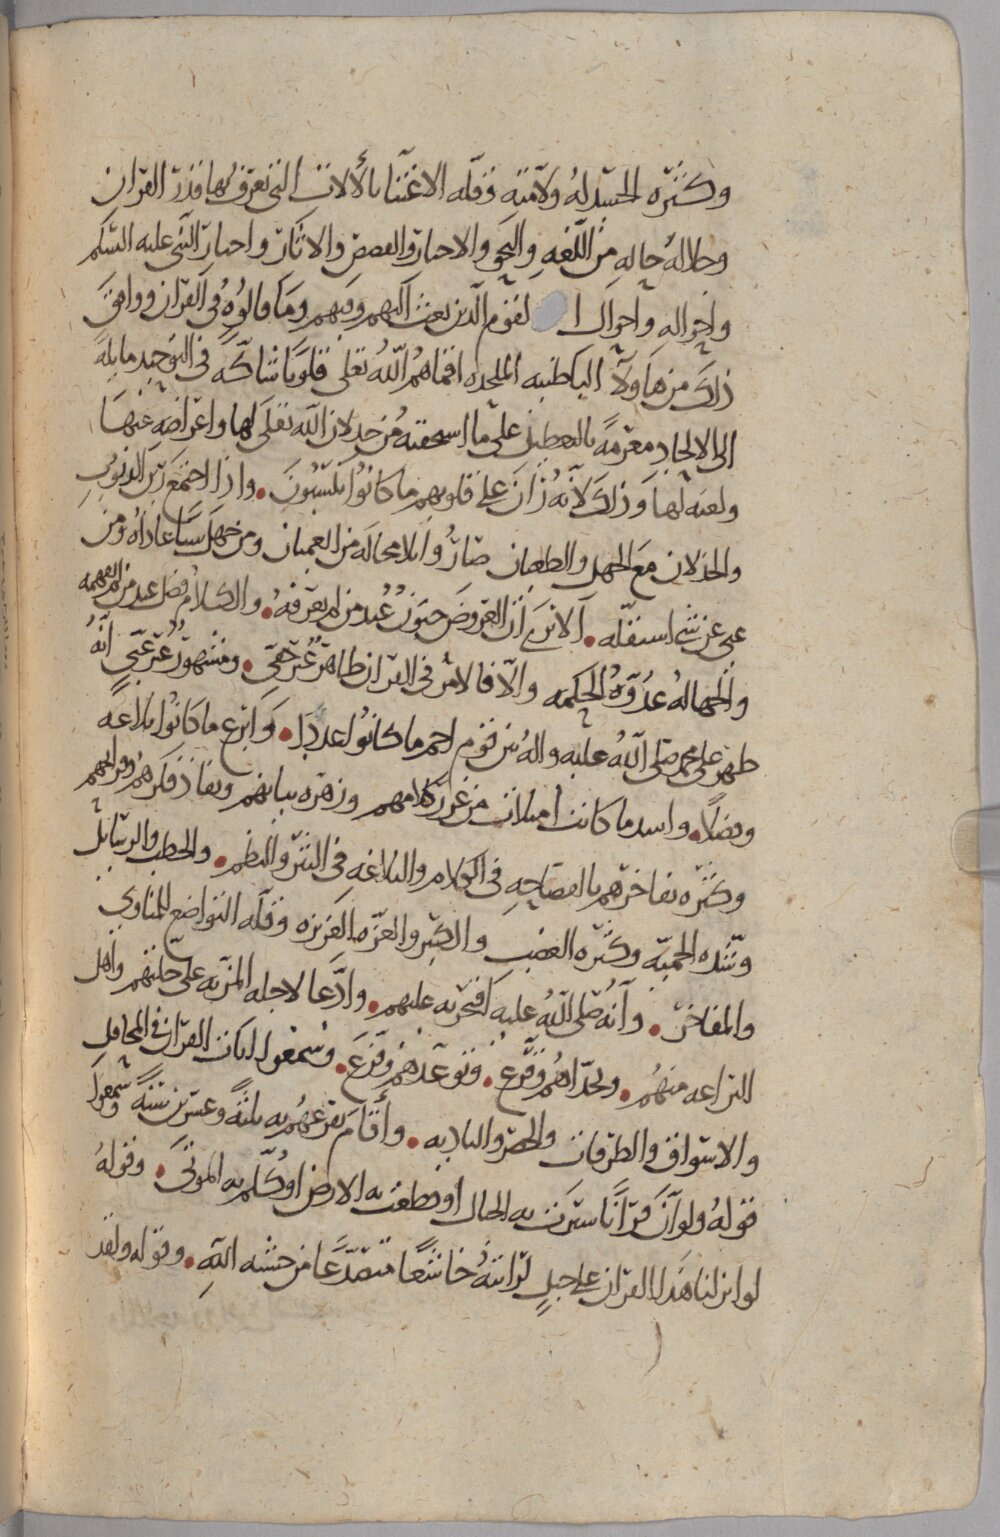 وكثره الحسد له ولامته وقله الاعتنا بالالات التي تعرف بها قدر القران
وجلاله حاله من اللغه والنحو والاخبار والقصص والاثار واخبار النبي عليه السلم
واحواله واحوال ا لقوم الذين بعث اليهم وفيهم وما قالوه في القران ووافق
ذلك من هاولا الباطنيه الملحده اقماهم الله تعلى قلوبا شاكه في التوحيد مايله
الى الالحاد مغرمه بالتعطيل على ما استحقته من خذلان الله تعلى لها واعراضه عنها
ولعنه لها وذلك لانه ران على قلوبهم ما كانوا يكسبون. واذا اجتمع رين الذنوب
والخذلان مع الجهل والطغيان صاروا لا محاله من العميان ومن جهل شيا عاداه ومن
عمي عن شي استقله. الا ترى ان العروض جنون عند من لم يعرفه. والكلام فضل عند من لم يفهمه
والجهاله عدوه الحكمه والا فالامر في القران ظاهر غير خفي. ومشهور غير غبي انه
ظهر على محمد صلى الله عليه واله بين قوم احمر ما كانوا عددا. وابرع ما كانوا بلاغه
وفضلا. واسد ما كانت امتلات من غرر كلامهم وزهره بيانهم ونفاذ فكرهم وقرايحهم
وكثره تفاخرهم بالفصاحه في الكلام والبلاغه في النثر والنظم. والخطب والرسايل
وشده الحميه وكثره الغضب والكبر والعزه الغزيره وقله التواضع للمناوي
والمفاخر. وانه صلى الله عليه افتخر به عليهم. وادعا لاجله المزيه على جلتهم واهل
البراعه منهم. وتحداهم وقرع. وتوعدهم وفزع. وسمعوا ايات القران في المحافل
والاسواق والطرقات والحضر والباديه. واقام يقرعهم به ثلثه وعشرين سنه وسمعوا
قوله ولو ان قرانا سيرت به الجبال او قطعت به الارض او كلم به الموتى. وقوله
لو انزلنا هذا القران على جبل لرايته خاشعا متصدعا من خشيه الله. وقوله ولقد